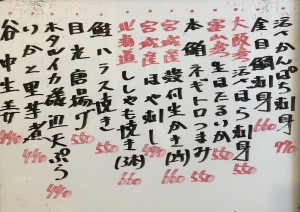 活〆かんぱち刺身 970
金目鯛刺身 660
大阪産 活〆はも刺身 550
生ほたるいか
本鮪ネギトロつまみ 550
宮城産 殻付生かき(1ケ)
宮城産 ほや刺し 660
北海道 ししゃも焼き(3本) 660
鮭ハラス焼き 550
目光唐揚げ 550
ホタルイカ磯辺天ぷら 440
いかと里芋煮 440
谷中生姜 440